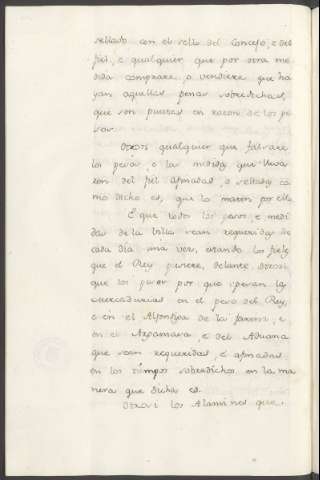 sellado con el sello del Concejo, e del
fiel, e qualquier que por otra me
dida comprare, o vendiere que ha
yan aquellas penas sobredichas,
que son puestas en razon de los pe
sos.
Otrosi qualquier que falsare
los pesos, o la medida que lleva
ren del fiel afinadas, o sellada co
mo dicho es, que lo maten por ello.
E que todos los pesos, e medi
das de la Villa sean requeridas de
cada dia una vez, estando los fieles
que el Rey pusiere, delante, otrosi
que los pesos por que pesan las
mercadurias en el peso del Rey,
e en el Alfondga de la farina, e
en el Azpamara, e del Aduana
que sean requeridas, e afinadas
en los tiempos sobredichos en la ma
nera que dicho es.
Otrosi los Alamines que